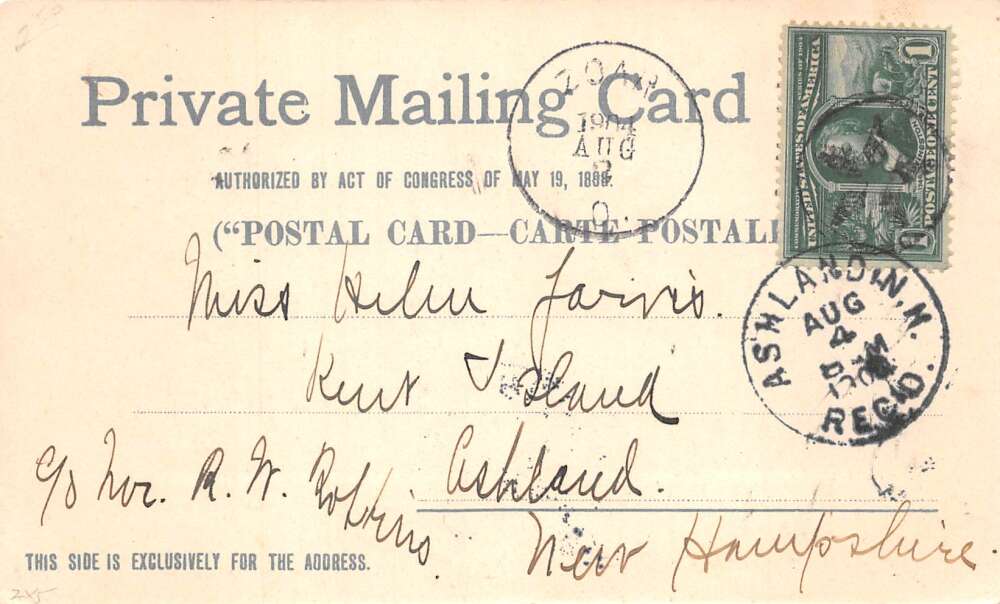 Private Mailing Card
AUTHORIZED BY ACT OF CONGRESS OF MAY 19, 1898.
("POSTAL CARD—CARTE POSTALE
ZOAR
1904
AUG
O.
1
UNITED STATES OF AMERICA
POSTAGE ONE CENT
1
ASHLAND, N.H.
AUG
4
1904
REC'D.
Miss Helen Jarvis.
Kent Island
c/o Mr. R. W. Robbins
Ashland.
New Hampshire.
THIS SIDE IS EXCLUSIVELY FOR THE ADDRESS.
2x5